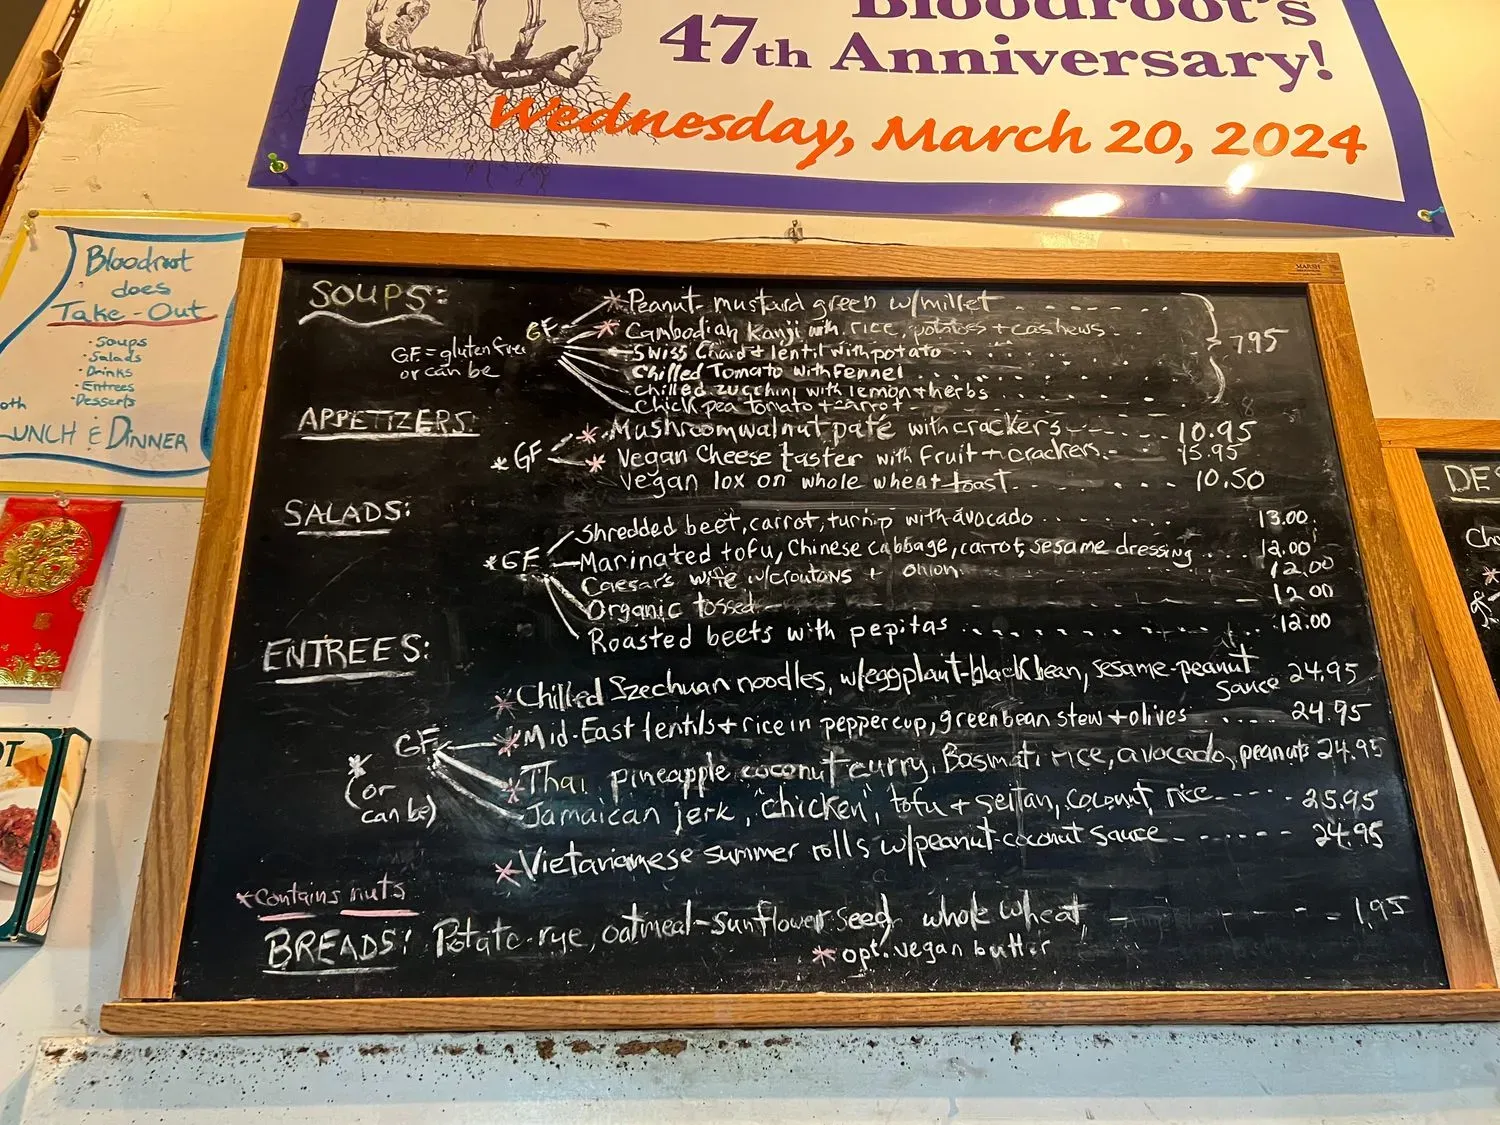 Bloodroot's
47th Anniversary!
Wednesday, March 20, 2024
Bloodroot
does
Take-Out
• Soups
• Salads
• Drinks
• Entrees
• Desserts
oth
LUNCH & DINNER
MARSH
SOUPS:
GF = gluten free
or can be
GF
* Peanut mustard green w/millet 7.95
* Cambodian Kanji with rice, potatoes + cashews
Swiss Chard + lentil with potato
Chilled Tomato with Fennel
Chilled zucchini with lemon + herbs
Chick pea tomato + carrot
APPETIZERS:
* GF
* Mushroom walnut pate with crackers 10.95
* Vegan Cheese taster with Fruit + crackers 15.95
Vegan lox on whole wheat toast 10.50
SALADS:
* GF
Shredded beet, carrot, turnip with avocado 13.00
Marinated tofu, Chinese cabbage, carrot, sesame dressing 12.00
Caesar's wife w/croutons + onion 12.00
Organic tossed 12.00
Roasted beets with pepitas 12.00
ENTREES:
* Chilled Szechuan noodles, w/eggplant-black bean, sesame-peanut
sauce 24.95
GF
* (or
can be)
* Mid-East lentils + rice in pepper cup, green bean stew + olives 24.95
* Thai pineapple coconut curry, Basmati rice, avocado, peanuts 24.95
Jamaican jerk, "chicken", tofu + seitan, coconut rice 25.95
* Vietnamese summer rolls w/peanut-coconut sauce 24.95
* Contains nuts
BREADS: Potato-rye, oatmeal-sunflower seed, whole wheat, 1.95
* opt. vegan butter
DES
Cho
OT